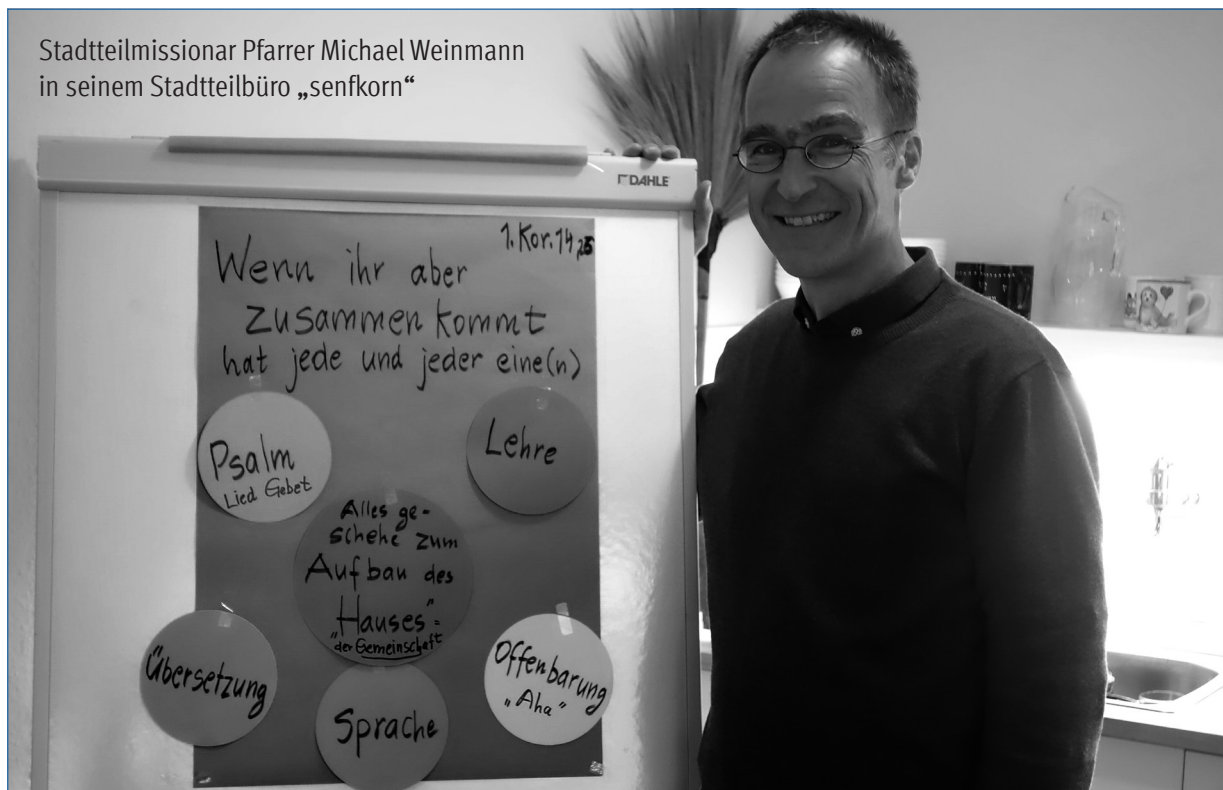 Stadtteilmissionar Pfarrer Michael Weinmann
in seinem Stadtteilbüro „senfkorn“
DAHLE
1. Kor. 14,26
Wenn ihr aber
zusammen kommt
hat jede und jeder eine(n)
Psalm
Lied Gebet
Lehre
Alles ge-
schehe zum
Aufbau des
„Hauses“=
der Gemeinschaft
Übersetzung
Sprache
Offenbarung
„Aha“